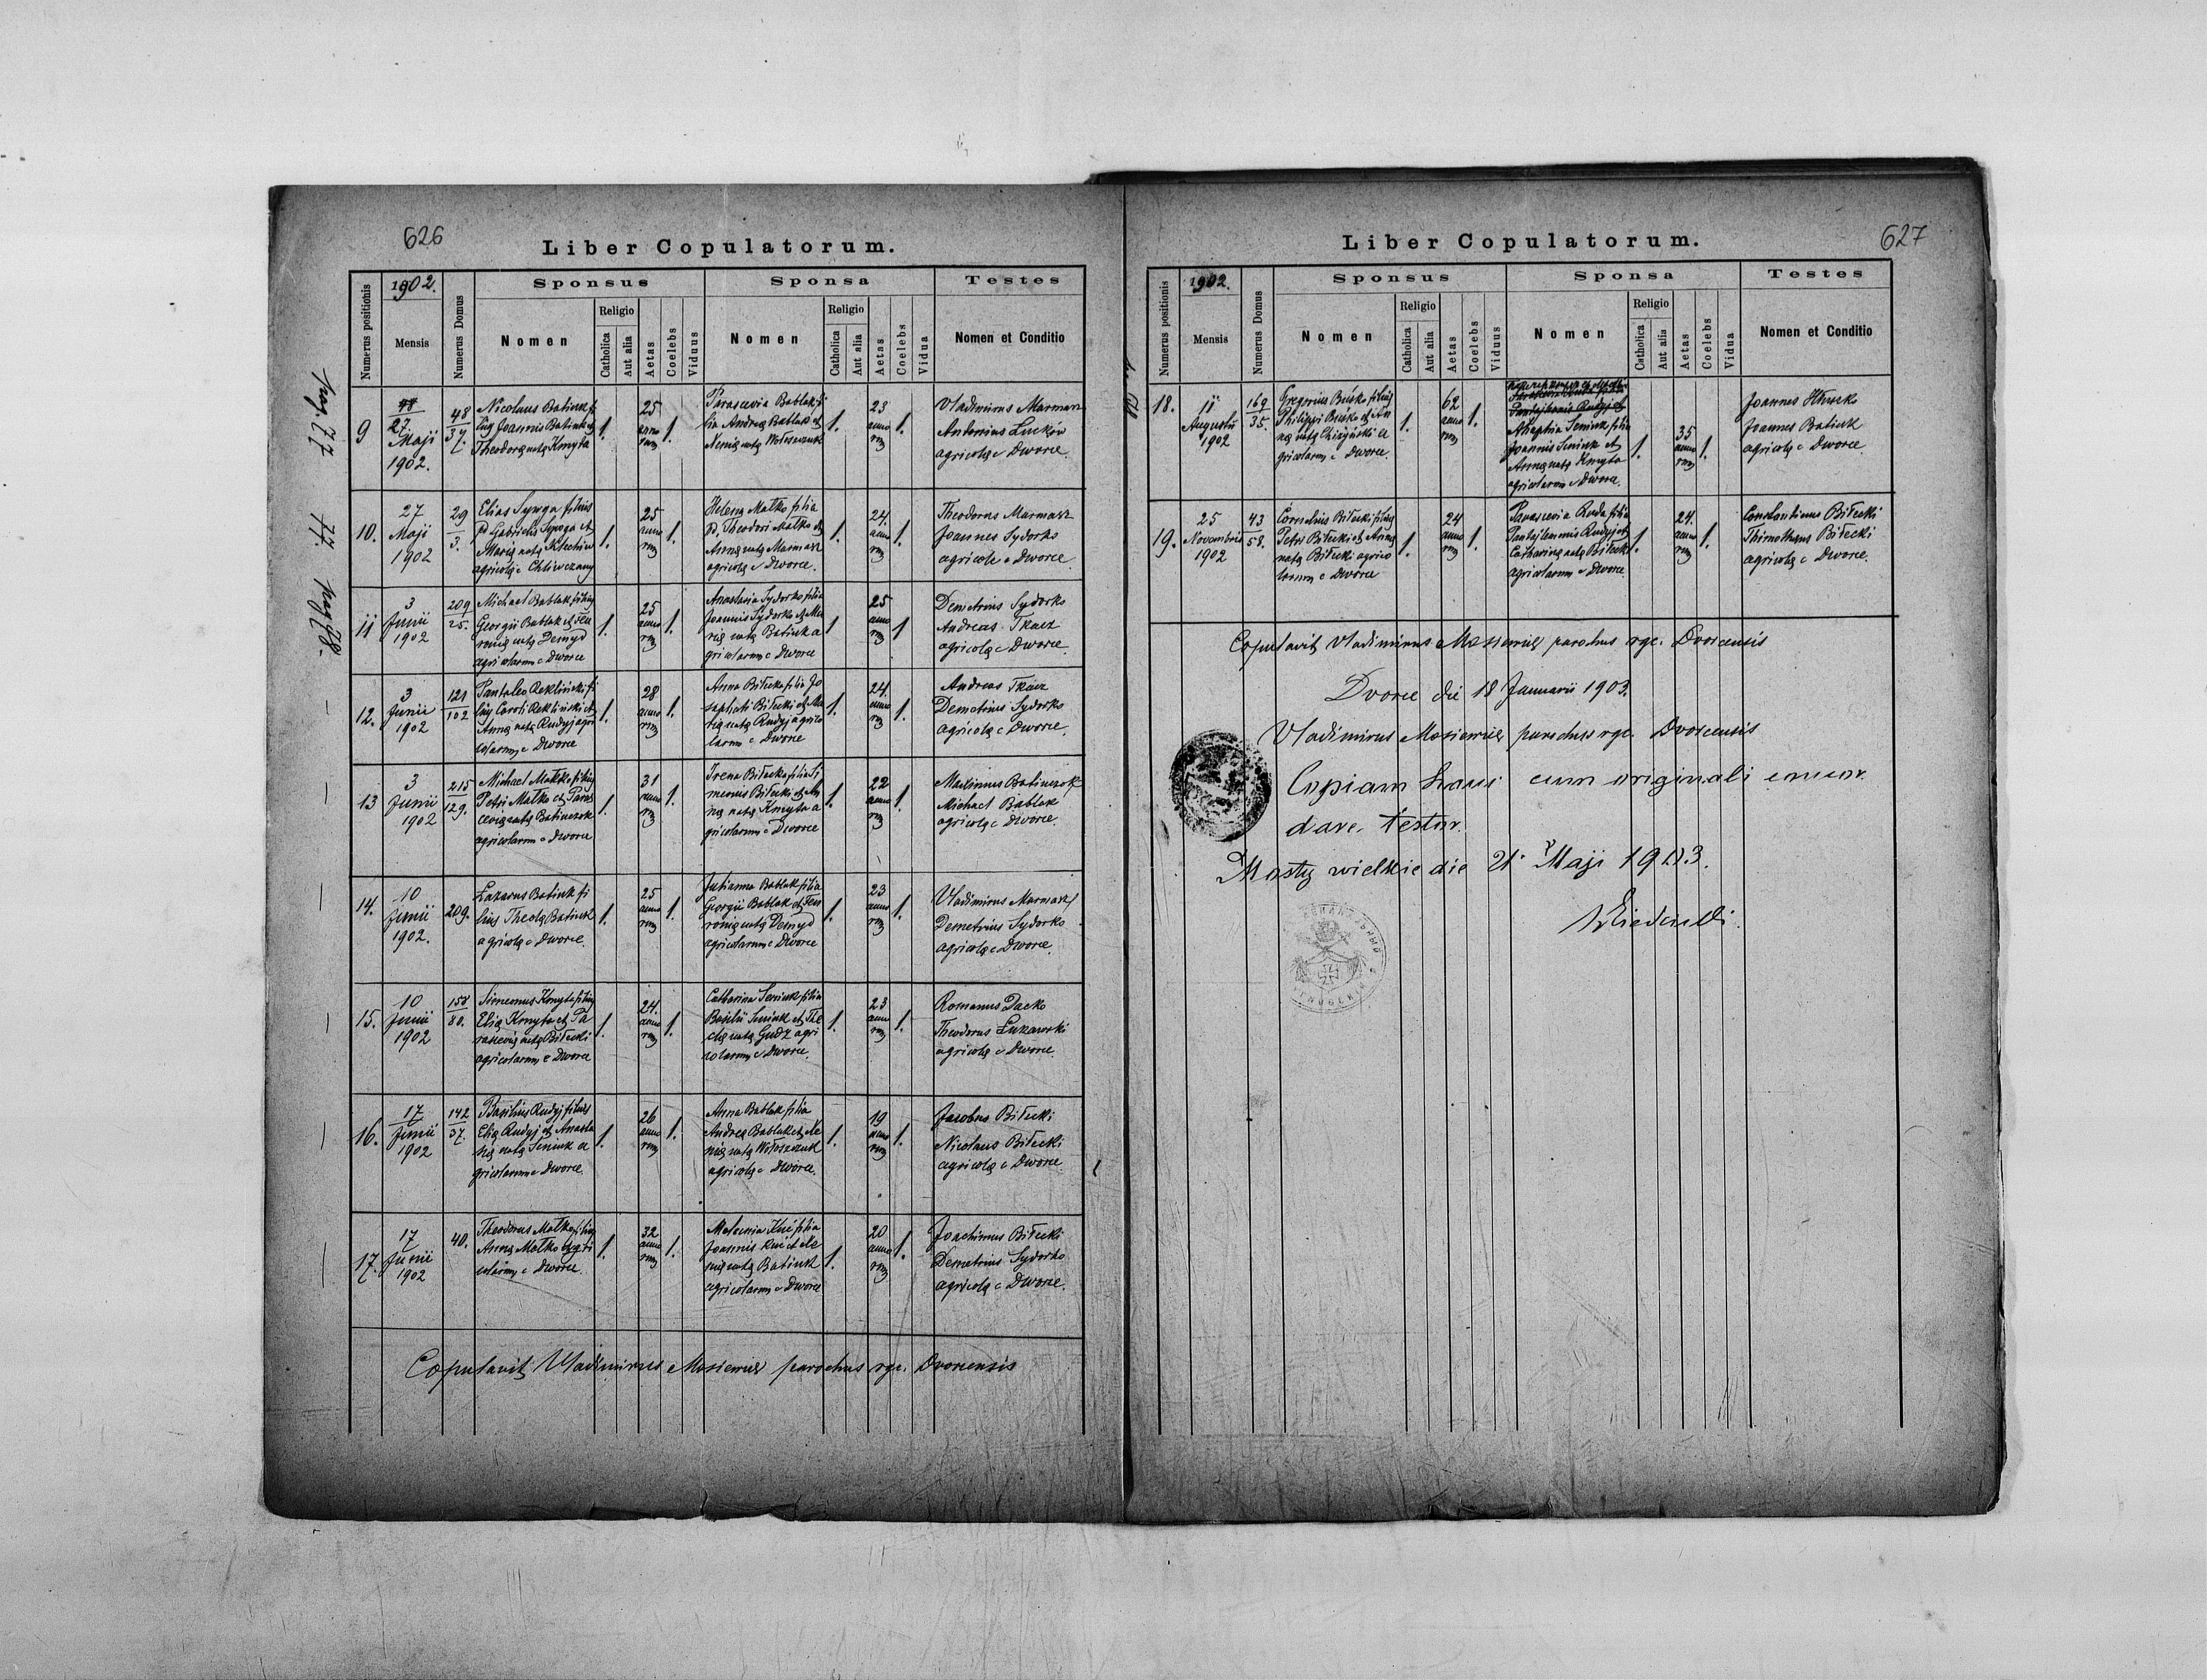 626
Liber Copulatorum.
Numerus positionis
1902.
Mensis
Numerus Domus
Sponsus
Nomen
Religio
Catholica
Aut alia
Aetas
Coelebs
Viduus
Sponsa
Nomen
Religio
Catholica
Aut alia
Aetas
Coelebs
Vidua
Testes
Nomen et Conditio
9
27.
Maji
1902.
48
37.
Nicolaus Batiuk fi
lius Joannis Batiuk et
Theodora nata Kmyta
1.
25
anno
rum
1.
Parascevia Bablak fi
lia Andreæ Bablak et
Xeniæ natæ Wołoszczuk
1.
23
anno
rum
1.
Vladimirus Marmasz
Antonius Luckiw
agricolæ e Dworce.
10.
27
Maji
1902
29
3.
Elias Sywga filius
Gabrielis Sywga et
Mariæ natæ
agricolæ e Chliwczany
1.
25
anno
rum
1.
Helena Matko filia
Theodori Matko et
Annæ natæ Marmasz
agricolæ e Dworce.
1.
24.
anno
rum
1.
Theodorus Marmasz
Joannes Sydorko
agricolæ e Dworce.
11
3
Junii
1902
209
25.
Michael Bablak filius
Georgii Bablak et Feu
roniæ natæ Demyd
agricolarum e Dworce
1.
25
anno
rum
1.
Anastasia Sydorko filia
Joannis Sydorko et Ma
riæ natæ Batiuk a
gricolarum e Dworce
1
25
anno
rum
1
Demetrius Sydorko
Andreas Tkacz
agricolæ e Dworce.
12.
3
Junii
1902
121
102
Pantaleo Rekliński fi
lius Caroli Rekliński et
Annæ natæ Rudyj agri
colarum e Dworce
1.
28
anno
rum
1.
Anna Biłecka filia Jo
saphati Biłecki et Ma
riæ natæ Rudyj agrico
larum e Dworce
1.
24.
anno
rum
1.
Andreas Tkacz
Demetrius Sydorko
agricolæ e Dworce.
13
3
Junii
1902
215
129.
Michael Matko filius
Petri Matko et Paras
ceviæ natæ Batiuczok
agricolarum e Dworce
1.
31
anno
rum
1.
Irena Biłecka filia Si
meonis Biłecki et An
næ natæ Kmyta a
gricolarum e Dworce
1.
22
anno
rum
1.
Maximus Batiuczok
Michael Bablak
agricolæ e Dworce.
14.
10
Junii
1902.
209.
Lazarus Batiuk fi
lius Theclæ Batiuk
agricolæ e Dworce.
1.
25
anno
rum
1.
Julianna Bablak filia
Georgii Bablak et Feu
roniæ natæ Demyd
agricolarum e Dworce
1.
23
anno
rum
1.
Vladimirus Marmasz
Demetrius Sydorko
agricolæ e Dworce.
15.
10
Junii
1902
80.
Simeonus Kmyta filius
Eliæ Kmyta et Pa
rasceviæ natæ Biłecki
agricolarum e Dworce
1.
24.
anno
rum
1.
Catharina Seniuk filia
Basilii Seniuk et The
clæ natæ Gudz agri
colarum e Dworce.
1.
23
anno
rum
1.
Romanus Dacko
Theodorus Łukawski
agricolæ e Dworce.
16.
17
Junii
1902
142
37.
Basilius Rudyj filius
Eliæ Rudyj et Anasta
siæ natæ Seniuk a
gricolarum e Dworce.
1.
26
anno
rum
1.
Anna Bablak filia
Andreæ Bablak et Xe
niæ natæ Wołoszczuk
agricolæ e Dworce.
1.
19
anno
rum
1.
Jacobus Biłecki
Nicolaus Biłecki
agricolæ e Dworce
17.
17
Junii
1902
40.
Theodorus Matko filius
Annæ Matko agri
colarum e Dworce.
1.
32
anno
rum
1.
Melania filia
Joannis et Xe
niæ natæ Batiuk
agricolarum e Dworce
1.
20
anno
rum
1.
Joachimus Biłecki
Demetrius Sydorko
agricolæ e Dworce.
Copulavit Vladimirus Mosiewicz parochus rgc. Dvorcensis
627
Liber Copulatorum.
Numerus positionis
1902.
Mensis
Numerus Domus
Sponsus
Nomen
Religio
Catholica
Aut alia
Aetas
Coelebs
Viduus
Sponsa
Nomen
Religio
Catholica
Aut alia
Aetas
Coelebs
Vidua
Testes
Nomen et Conditio
18.
11
Augusti
1902
169
35.
Gregorius Buśko filius
Philippi Buśko et An
næ natæ a
gricolarum e Dworce.
1.
62
anno
rum
1.
Agaphia Seniuk filia
Joannis Seniuk et
Annæ natæ Kmyta
agricolarum e Dworce.
1.
35
anno
rum
1.
Joannes
Joannes Batiuk
agricolæ e Dworce.
19.
25
Novembris
1902
43
58.
Cornelius Biłecki filius
Petri Biłecki et Annæ
natæ Biłecki agrico
larum e Dworce
1.
24
anno
rum
1.
Parascevia Ruda filia
Pantaleemonis Rudyj et
Catharinæ natæ Biłecki
agricolarum e Dworce
1.
24.
anno
rum
1.
Constantinus Biłecki
Thimotheus Biłecki
agricolæ e Dworce.
Copulavit Vladimirus Mosiewicz parochus rgc. Dvorcensis
Dvorce die 18 Januarii 1903.
Vladimirus Mosiewicz parochus rgc. Dvorcensis
Copiam hanc cum originali concor
dare testor.
Mosty wielkie die 21. Maji 1903.